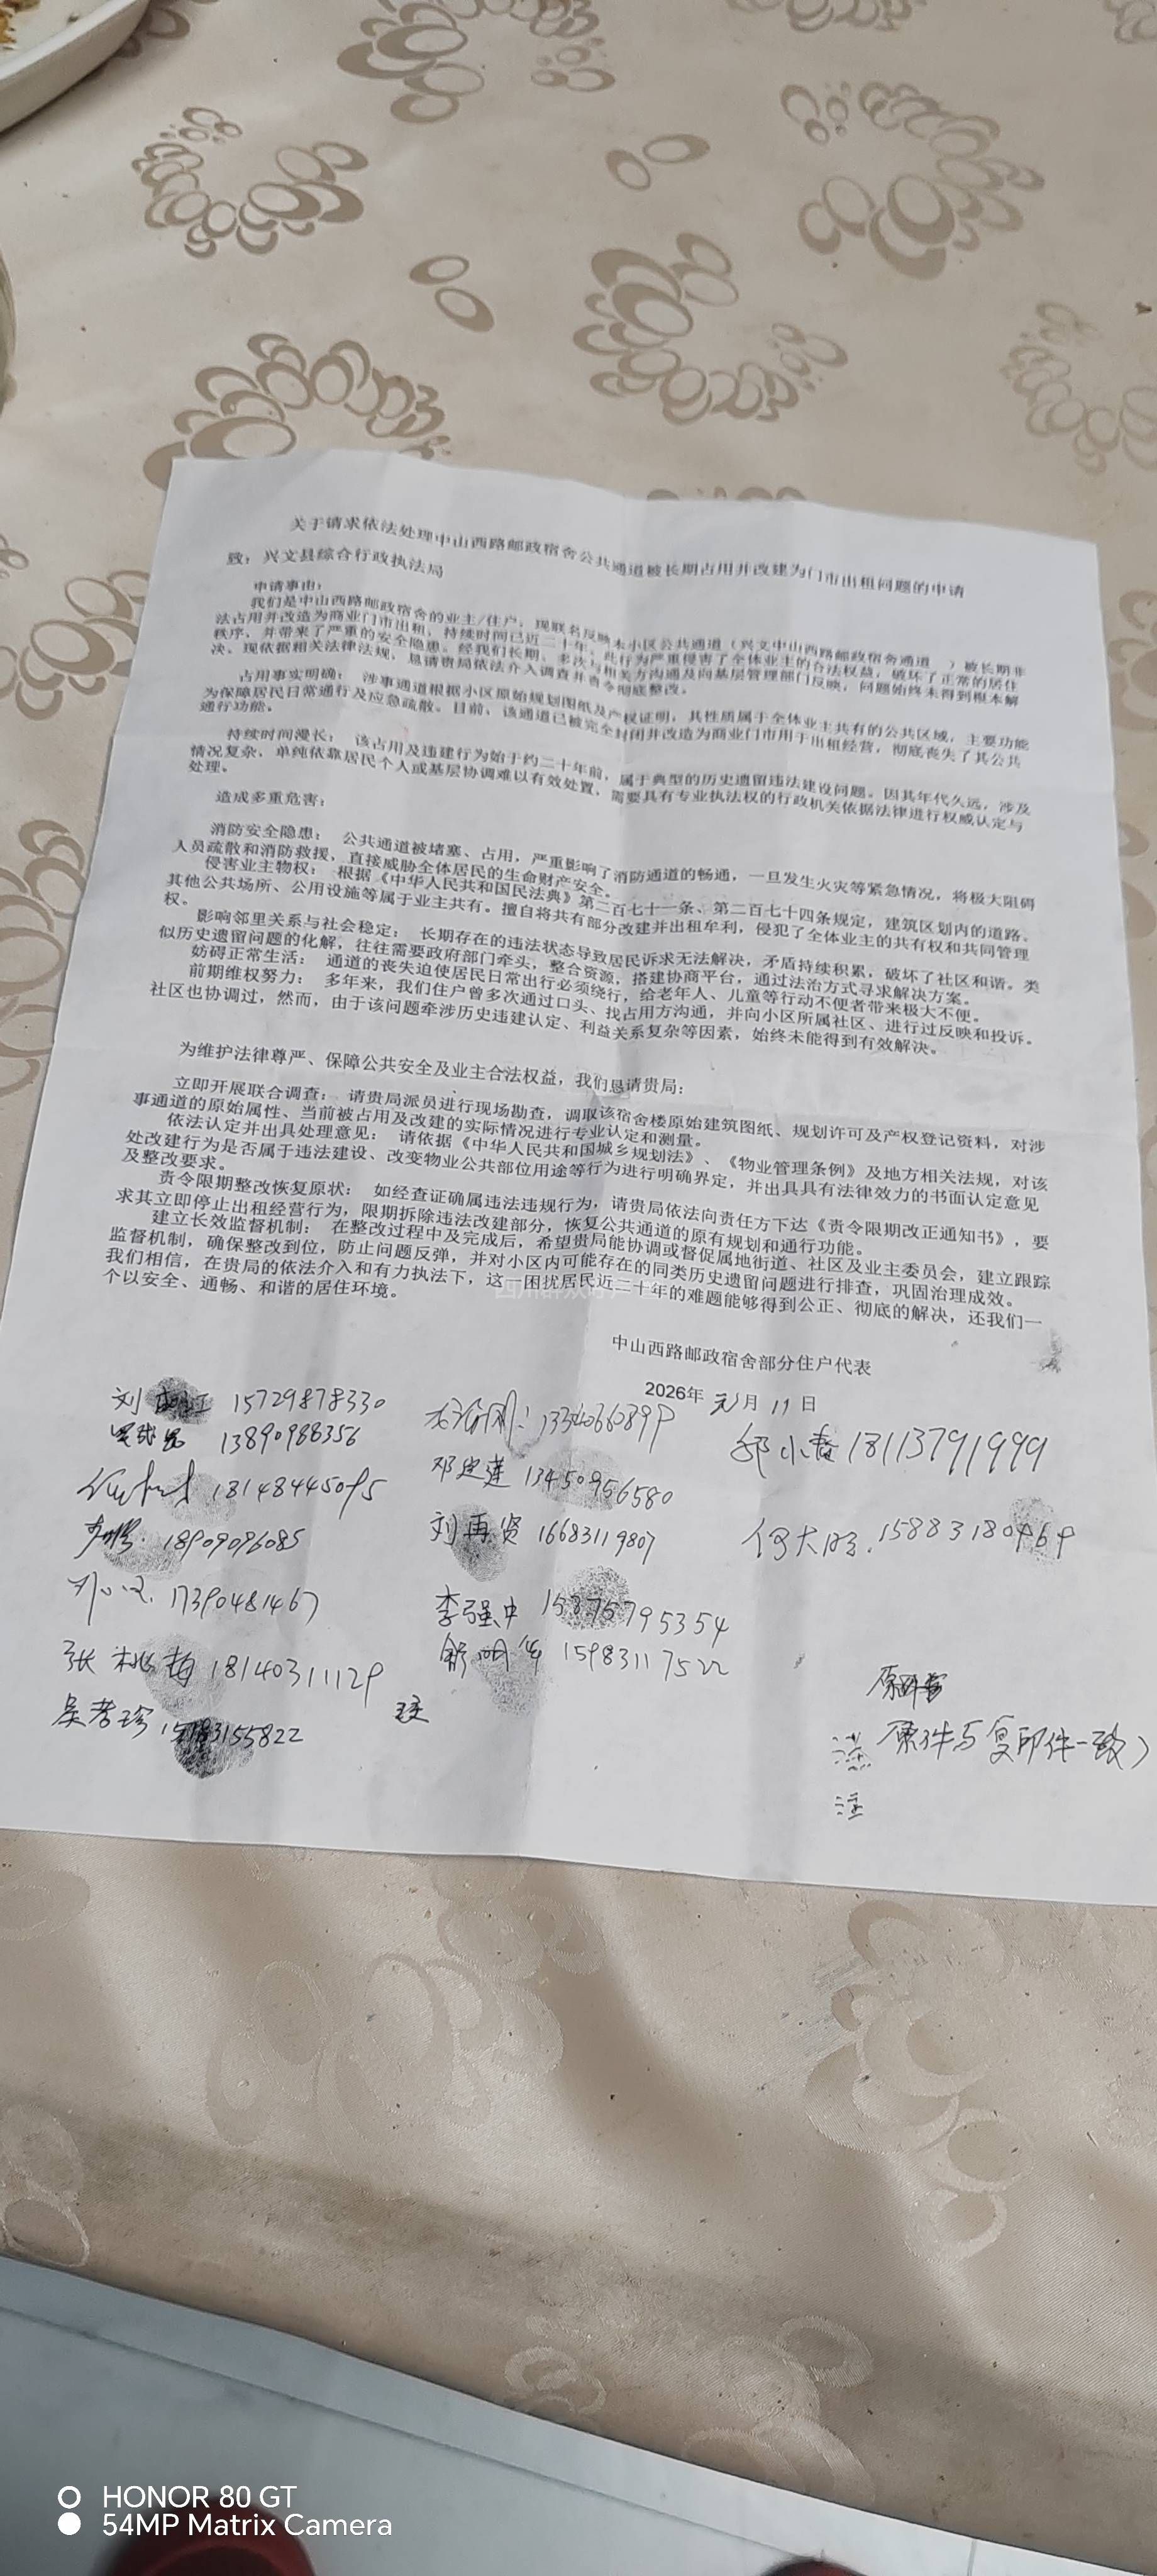 关于请求依法处理中山西路邮政宿舍公共通道被长期占用并改建为门市出租问题的申请
致：兴文县综合行政执法局
申请事由：
我们是中山西路邮政宿舍的业主/住户，现联名反映本小区公共通道（兴文中山西路邮政宿舍通道　）被长期非
法占用并改造为商业门市出租，持续时间已近二十年。此行为严重侵害了全体业主的合法权益，破坏了正常的居住
秩序，并带来了严重的安全隐患。经我们长期、多次与相关方沟通及向基层管理部门反映，问题始终未得到根本解
决。现依据相关法律法规，恳请贵局依法介入调查并责令彻底整改。
占用事实明确：　涉事通道根据小区原始规划图纸及产权证明，其性质属于全体业主共有的公共区域，主要功能
为保障居民日常通行及应急疏散。目前，该通道已被完全封闭并改造为商业门市用于出租经营，彻底丧失了其公共
通行功能。
持续时间漫长：　该占用及违建行为始于约二十年前，属于典型的历史遗留违法建设问题。因其年代久远，涉及
情况复杂，单纯依靠居民个人或基层协调难以有效处置，需要具有专业执法权的行政机关依据法律进行权威认定与
处理。
造成多重危害：
消防安全隐患：　公共通道被堵塞、占用，严重影响了消防通道的畅通，一旦发生火灾等紧急情况，将极大阻碍
人员疏散和消防救援，直接威胁全体居民的生命财产安全。
侵害业主物权：　根据《中华人民共和国民法典》第二百七十一条、第二百七十四条规定，建筑区划内的道路、
其他公共场所、公用设施等属于业主共有。擅自将共有部分改建并出租牟利，侵犯了全体业主的共有权和共同管理
权。
影响邻里关系与社会稳定：　长期存在的违法状态导致居民诉求无法解决，矛盾持续积累，破坏了社区和谐。类
似历史遗留问题的化解，往往需要政府部门牵头，整合资源，搭建协商平台，通过法治方式寻求解决方案。
妨碍正常生活：　通道的丧失迫使居民日常出行必须绕行，给老年人、儿童等行动不便者带来极大不便。
前期维权努力：　多年来，我们住户曾多次通过口头、找占用方沟通，并向小区所属社区、进行过反映和投诉。
社区也协调过，然而，由于该问题牵涉历史违建认定、利益关系复杂等因素，始终未能得到有效解决。
为维护法律尊严、保障公共安全及业主合法权益，我们恳请贵局：
立即开展联合调查：　请贵局派员进行现场勘查，调取该宿舍楼原始建筑图纸、规划许可及产权登记资料，对涉
事通道的原始属性、当前被占用及改建的实际情况进行专业认定和测量。
依法认定并出具处理意见：　请依据《中华人民共和国城乡规划法》、《物业管理条例》及地方相关法规，对该
处改建行为是否属于违法建设、改变物业公共部位用途等行为进行明确界定，并出具具有法律效力的书面认定意见
及整改要求。
责令限期整改恢复原状：　如经查证确属违法违规行为，请贵局依法向责任方下达《责令限期改正通知书》，要
求其立即停止出租经营行为，限期拆除违法改建部分，恢复公共通道的原有规划和通行功能。
建立长效监督机制：　在整改过程中及完成后，希望贵局能协调或督促属地街道、社区及业主委员会，建立跟踪
监督机制，确保整改到位，防止问题反弹，并对小区内可能存在的同类历史遗留问题进行排查，巩固治理成效。
我们相信，在贵局的依法介入和有力执法下，这一困扰居民近二十年的难题能够得到公正、彻底的解决，还我们一
个以安全、通畅、和谐的居住环境。
中山西路邮政宿舍部分住户代表
2026年 元月 11 日
刘 江 15729878330
13890988356
18148445095
18909096085
17390481467
张桃梅 18140311129
吴孝珍 15183155822
13340660899
邓建莲 13450956580
刘再贤 16683119807
李强中 15875795354
舒明华 15983117522
邱小春 18113791999
何大 15883180969
原件与复印件一致）
注
HONOR 80 GT
54MP Matrix Camera